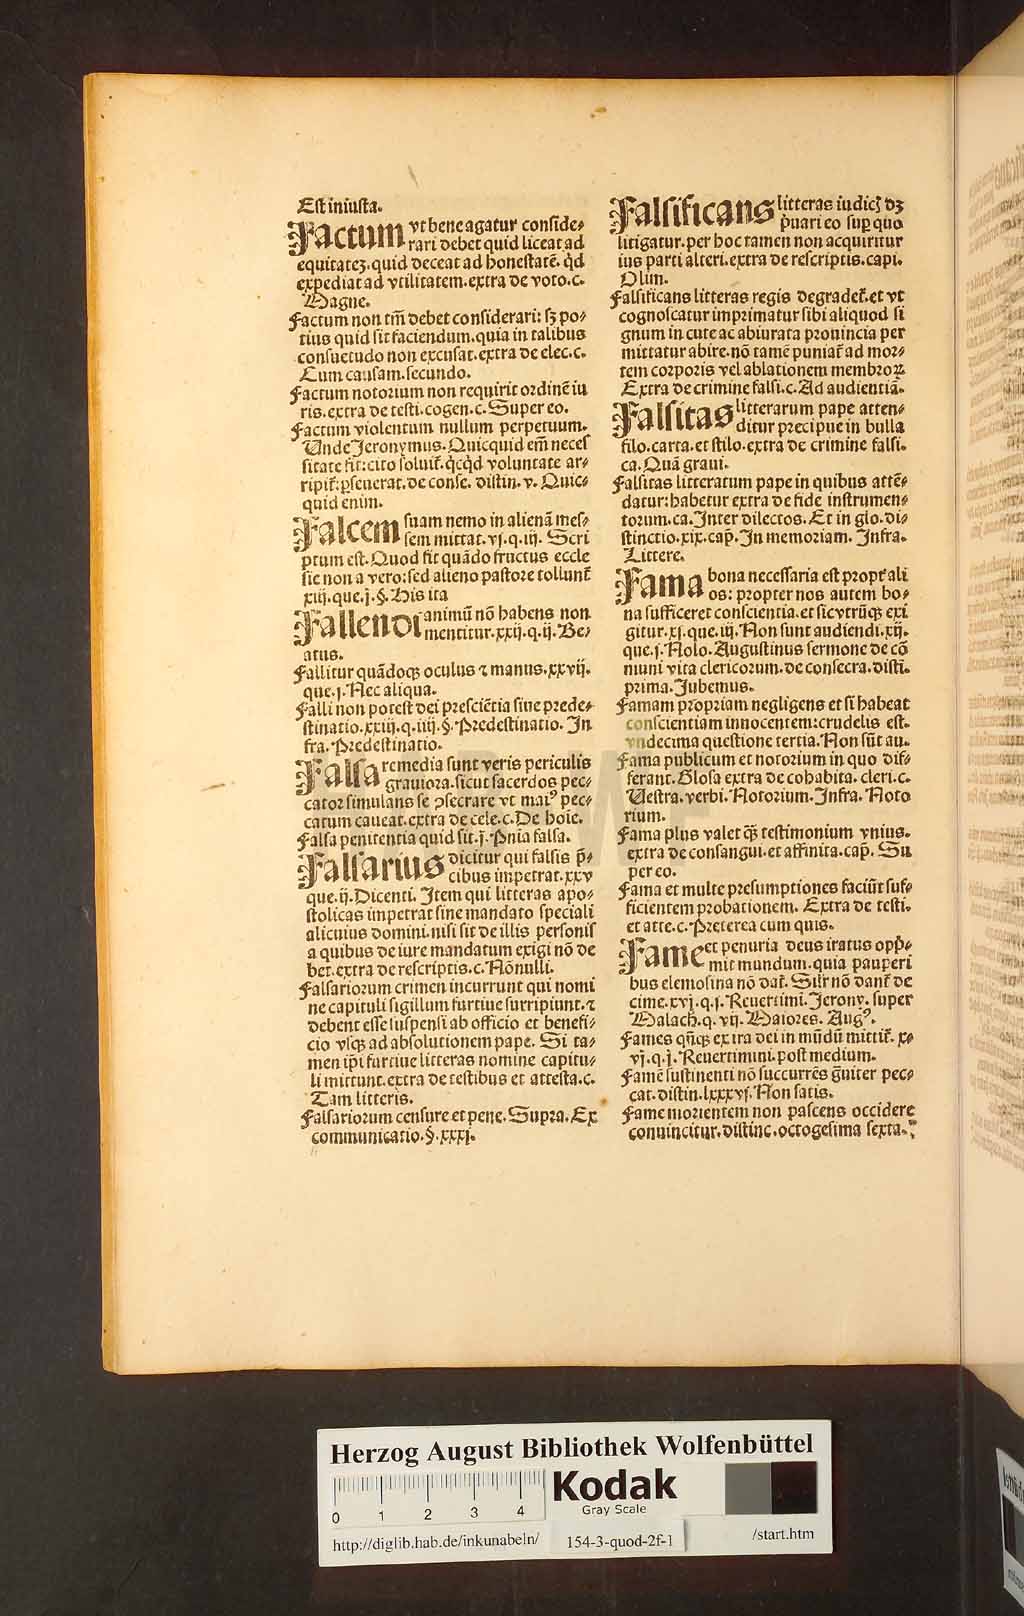 Est iniusta.
Factum vt bene agatur conside⸗
rari debet quid liceat ad
equitatēꝫ. quid deceat ad honestatē. q̇d
expediat ad vtilitatem. extra de voto. c.
Magne.
Factum non tm̄ debet considerari: sꝫ po⸗
tius quid sit faciendum. quia in talibus
consuetudo non excusat. extra de elec. c.
Cum causam. secundo.
Factum notorium non requirit ordinē iu
ris. extra de testi. cogen. c. Super eo.
Factum violentum nullum perpetuum.
Unde Jeronymus. Quicquid em̄ neces
sitate fit: cito soluit᷑. q̇cq̇d voluntate ar⸗
ripit᷑: ꝑseuerat. de conse. distin. v. Quic⸗
quid enim.
Falcem suam nemo in alienā mes⸗
sem mittat. vj. q. iij. Scri
ptum est. Quod fit quādo fructus eccle
sie non a vero: sed alieno pastore tollunt᷑
xiij. que. j. §. His ita
Fallendi animū nō habens non
mentitur. xxij. q. ij. Be⸗
atus.
Fallitur quādoqꝫ oculus ⁊ manus. xxvij.
que. j. Nec aliqua.
Falli non potest dei presciētia siue prede⸗
stinatio. xxiij. q. iiij. §. Predestinatio. In
fra. Predestinatio.
Falsa remedia sunt veris periculis
grauiora. sicut sacerdos pec⸗
cator simulans se ꝯsecrare vt maiꝰ pec⸗
catum caueat. extra de cele. c. De hoīe.
Falsa penitentia quid sit. j. Pnīa falsa.
Falsarius dicitur qui falsis p̄⸗
cibus impetrat. xxv
que. ij. Dicenti. Item qui litteras apo⸗
stolicas impetrat sine mandato speciali
alicuius domini. nisi sit de illis personis
a quibus de iure mandatum exigi nō de
bet. extra de rescriptis. c. Nōnulli.
Falsariorum crimen incurrunt qui nomi
ne capituli sigillum furtiue surripiunt. ⁊
debent esse suspensi ab officio et benefi⸗
cio vsqꝫ ad absolutionem pape. Si ta⸗
men ip̄i furtiue litteras nomine capitu⸗
li mittunt. extra de testibus et attesta. c.
Tam litteris.
Falsariorum censure et pene. Supra. Ex
communicatio. §. xxxj.
Falsificans litteras iudicꝭ dꝫ
p̄uari eo suꝑ quo
litigatur. per hoc tamen non acquiritur
ius parti alteri. extra de rescriptis. capi.
Olim.
Falsificans litteras regis degradet᷑. et vt
cognoscatur imprimatur sibi aliquod si
gnum in cute ac abiurata prouincia per
mittatur abire. nō tamē puniat᷑ ad mor⸗
tem corporis vel ablationem membroꝝ
Extra de crimine falsi. c. Ad audientiā.
Falsitas litterarum pape atten⸗
ditur precipue in bulla
filo. carta. et stilo. extra de crimine falsi.
ca. Quā graui.
Falsitas litteratum pape in quibus attē⸗
datur: habetur extra de fide instrumen⸗
torum. ca. Inter dilectos. Et in glo. di⸗
stinctio. xix. cap̄. In memoriam. Infra.
Littere.
Fama bona necessaria est propt᷑ ali
os: propter nos autem bo⸗
na sufficeret conscientia. et sic vtrūqꝫ exi
gitur. xj. que. iij. Non sunt audiendi. xij.
que. j. Nolo. Augustinus sermone de cō
muni vita clericorum. de consecra. disti.
prima. Jubemus.
Famam propriam negligens et si habeat
conscientiam innocentem: crudelis est.
vndecima questione tertia. Non sūt au.
Fama publicum et notorium in quo dif⸗
ferant. Glosa extra de cohabita. cleri. c.
Uestra. verbi. Notorium. Infra. Noto
rium.
Fama plus valet q̄ꝫ testimonium vnius.
extra de consangui. et affinita. cap̄. Su
per eo.
Fama et multe presumptiones faciūt suf⸗
ficientem probationem. Extra de testi.
et atte. c. Preterea cum quis.
Fame et penuria deus iratus opp̄⸗
mit mundum. quia pauperi
bus elemosina nō dat᷑. Sil̄r nō dant᷑ de
cime. xvj. q. j. Reuertimi. Jerony. super
Malach. q. vij. Maiores. Augꝰ.
Fames qn̄qꝫ ex ira dei in mūdū mittit᷑. x⸗
vj. q. j. Reuertimini. post medium.
Famē sustinenti nō succurrēs g̈uiter pec⸗
cat. distin. lxxxvj. Non satis.
Fame morientem non pascens occidere
conuincitur. distinc. octogesima sexta.
Herzog August Bibliothek Wolfenbüttel
0 1 2 3 4
Kodak
Gray Scale
http://diglib.hab.de/inkunabeln/ 154-3-quod-2f-1 /start.htm